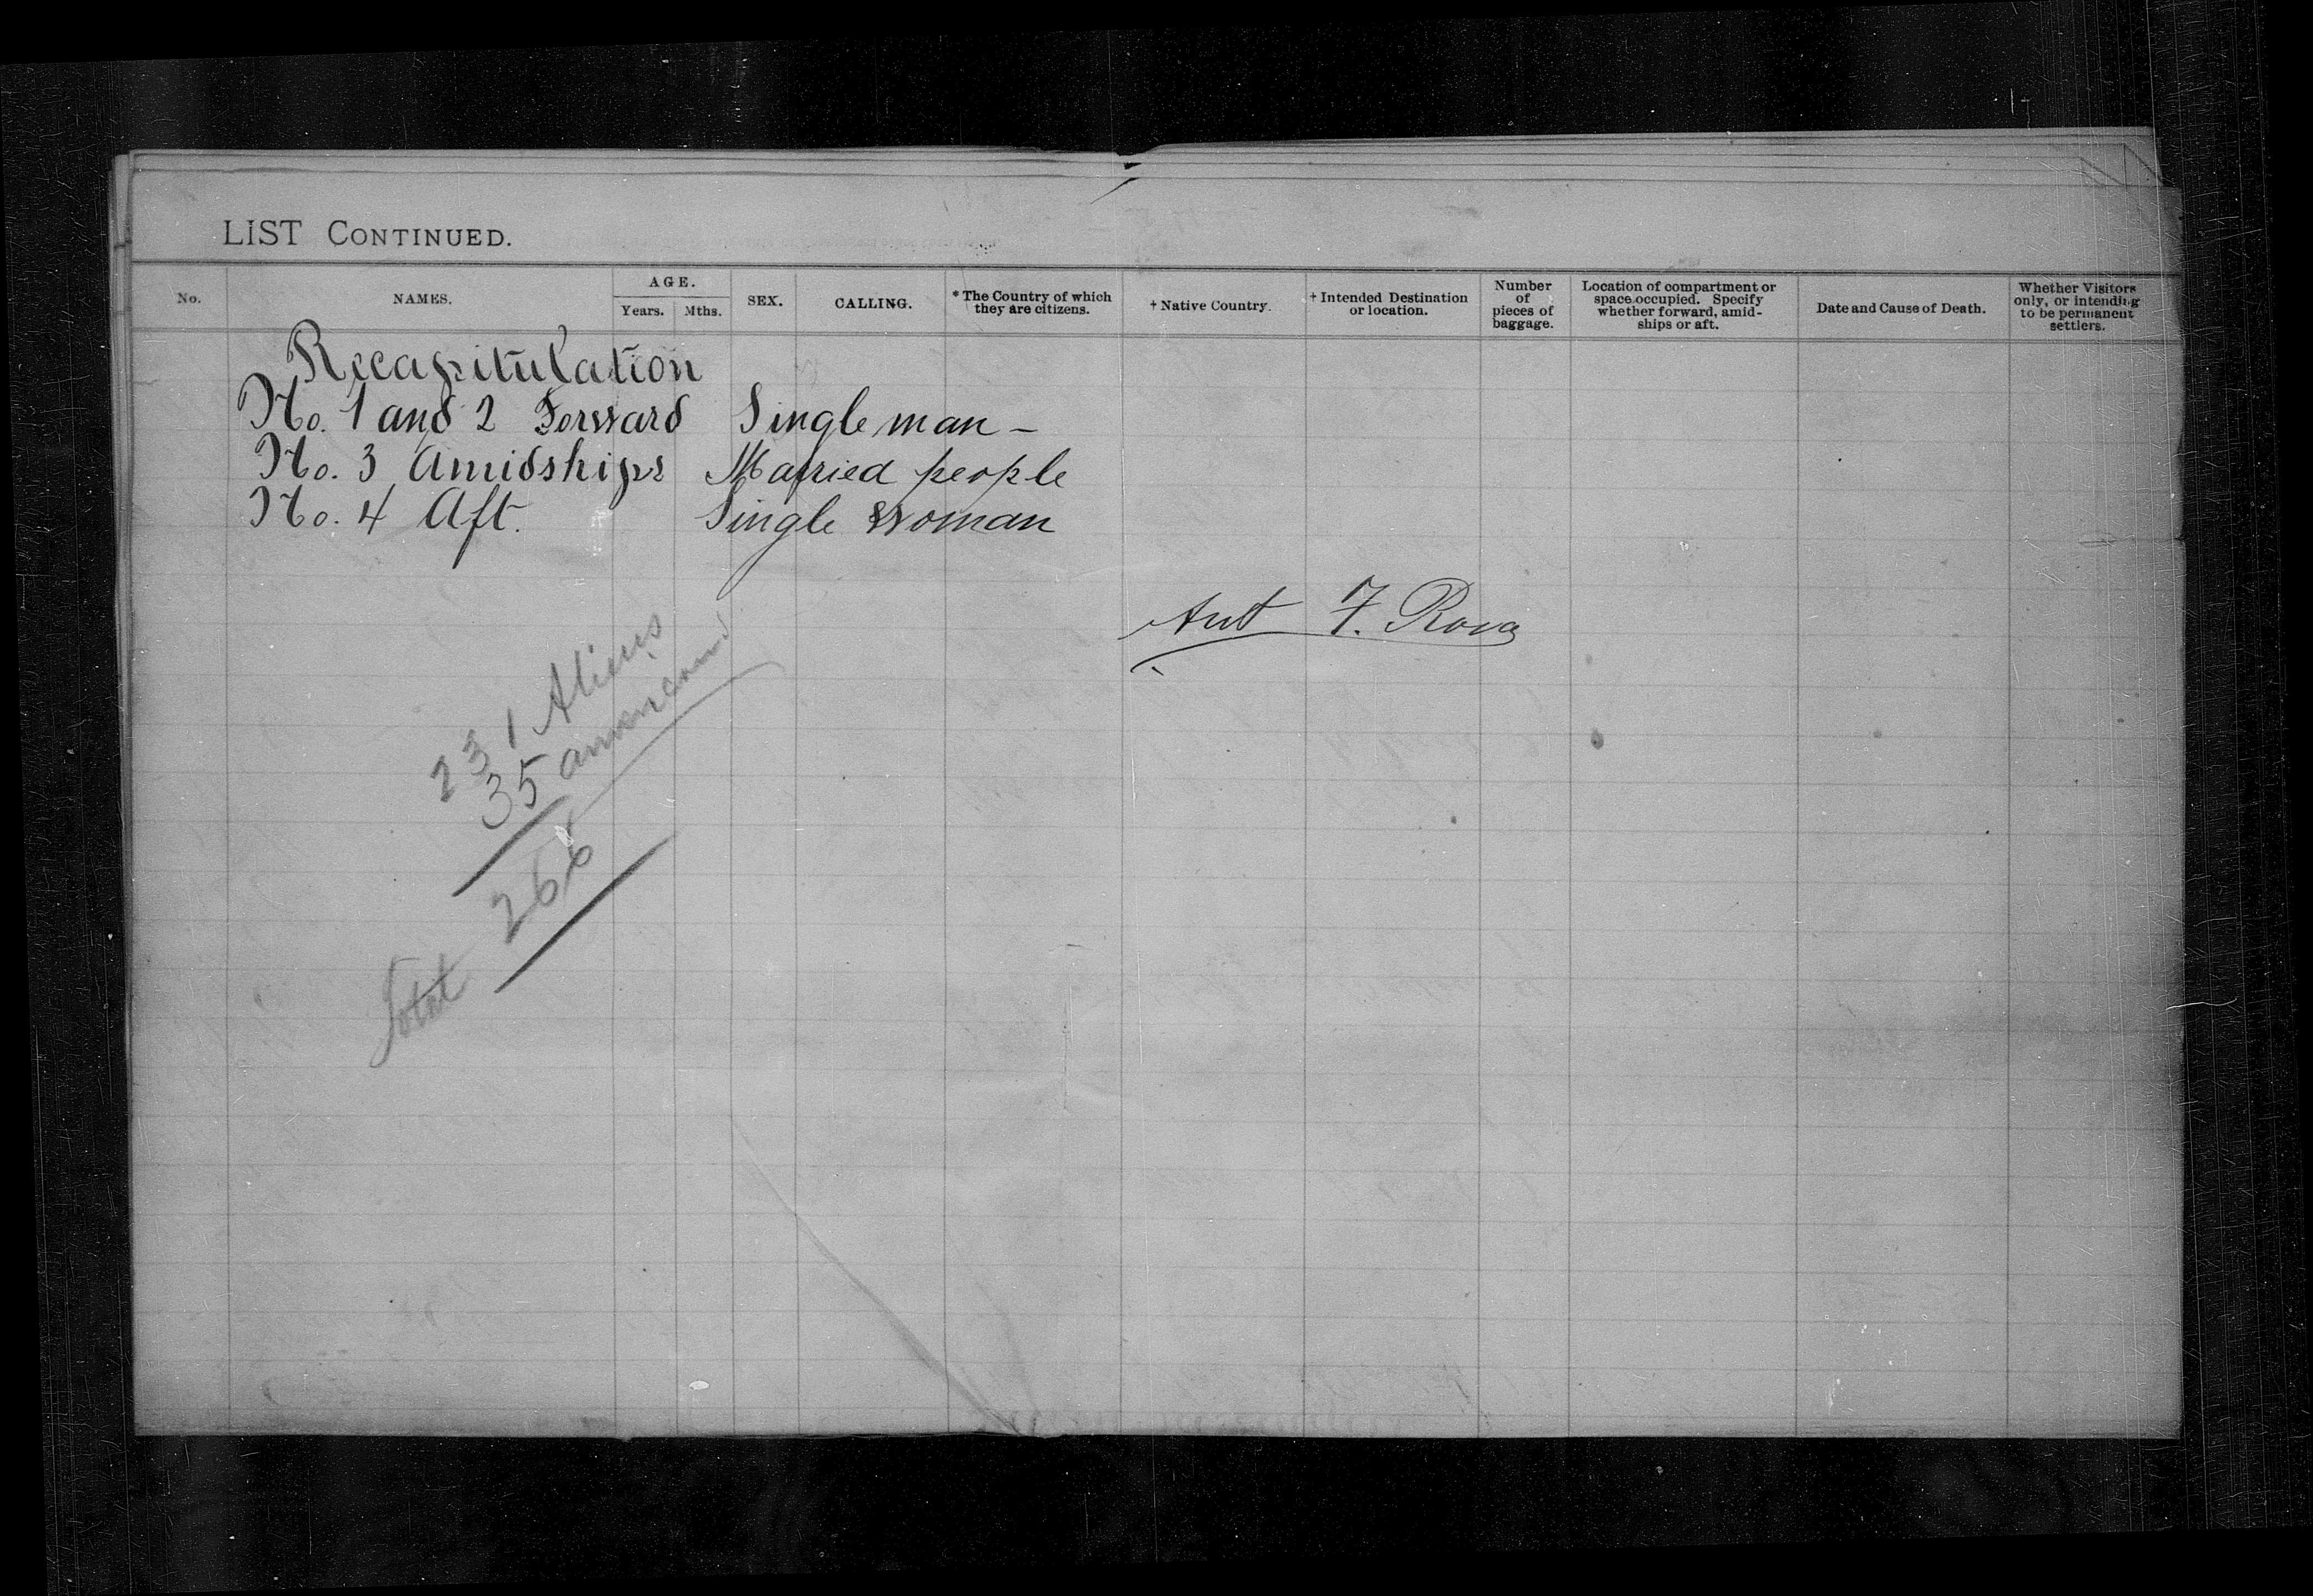 LIST CONTINUED.
No.
NAMES.
AGE.
Years.
Mths.
SEX.
CALLING.
* The Country of which
they are citizens.
† Native Country.
† Intended Destination
or location.
Number
of
pieces of
baggage.
Location of compartment or
space occupied. Specify
whether forward, amid-
ships or aft.
Date and Cause of Death.
Whether Visitors
only, or intending
to be permanent
settlers.
Recapitulation
No. 1 and 2 Forward Single man -
No. 3 Amidships Married people
No. 4 Aft. Single Woman
F.
231 Aliens
35 americans
Total 266